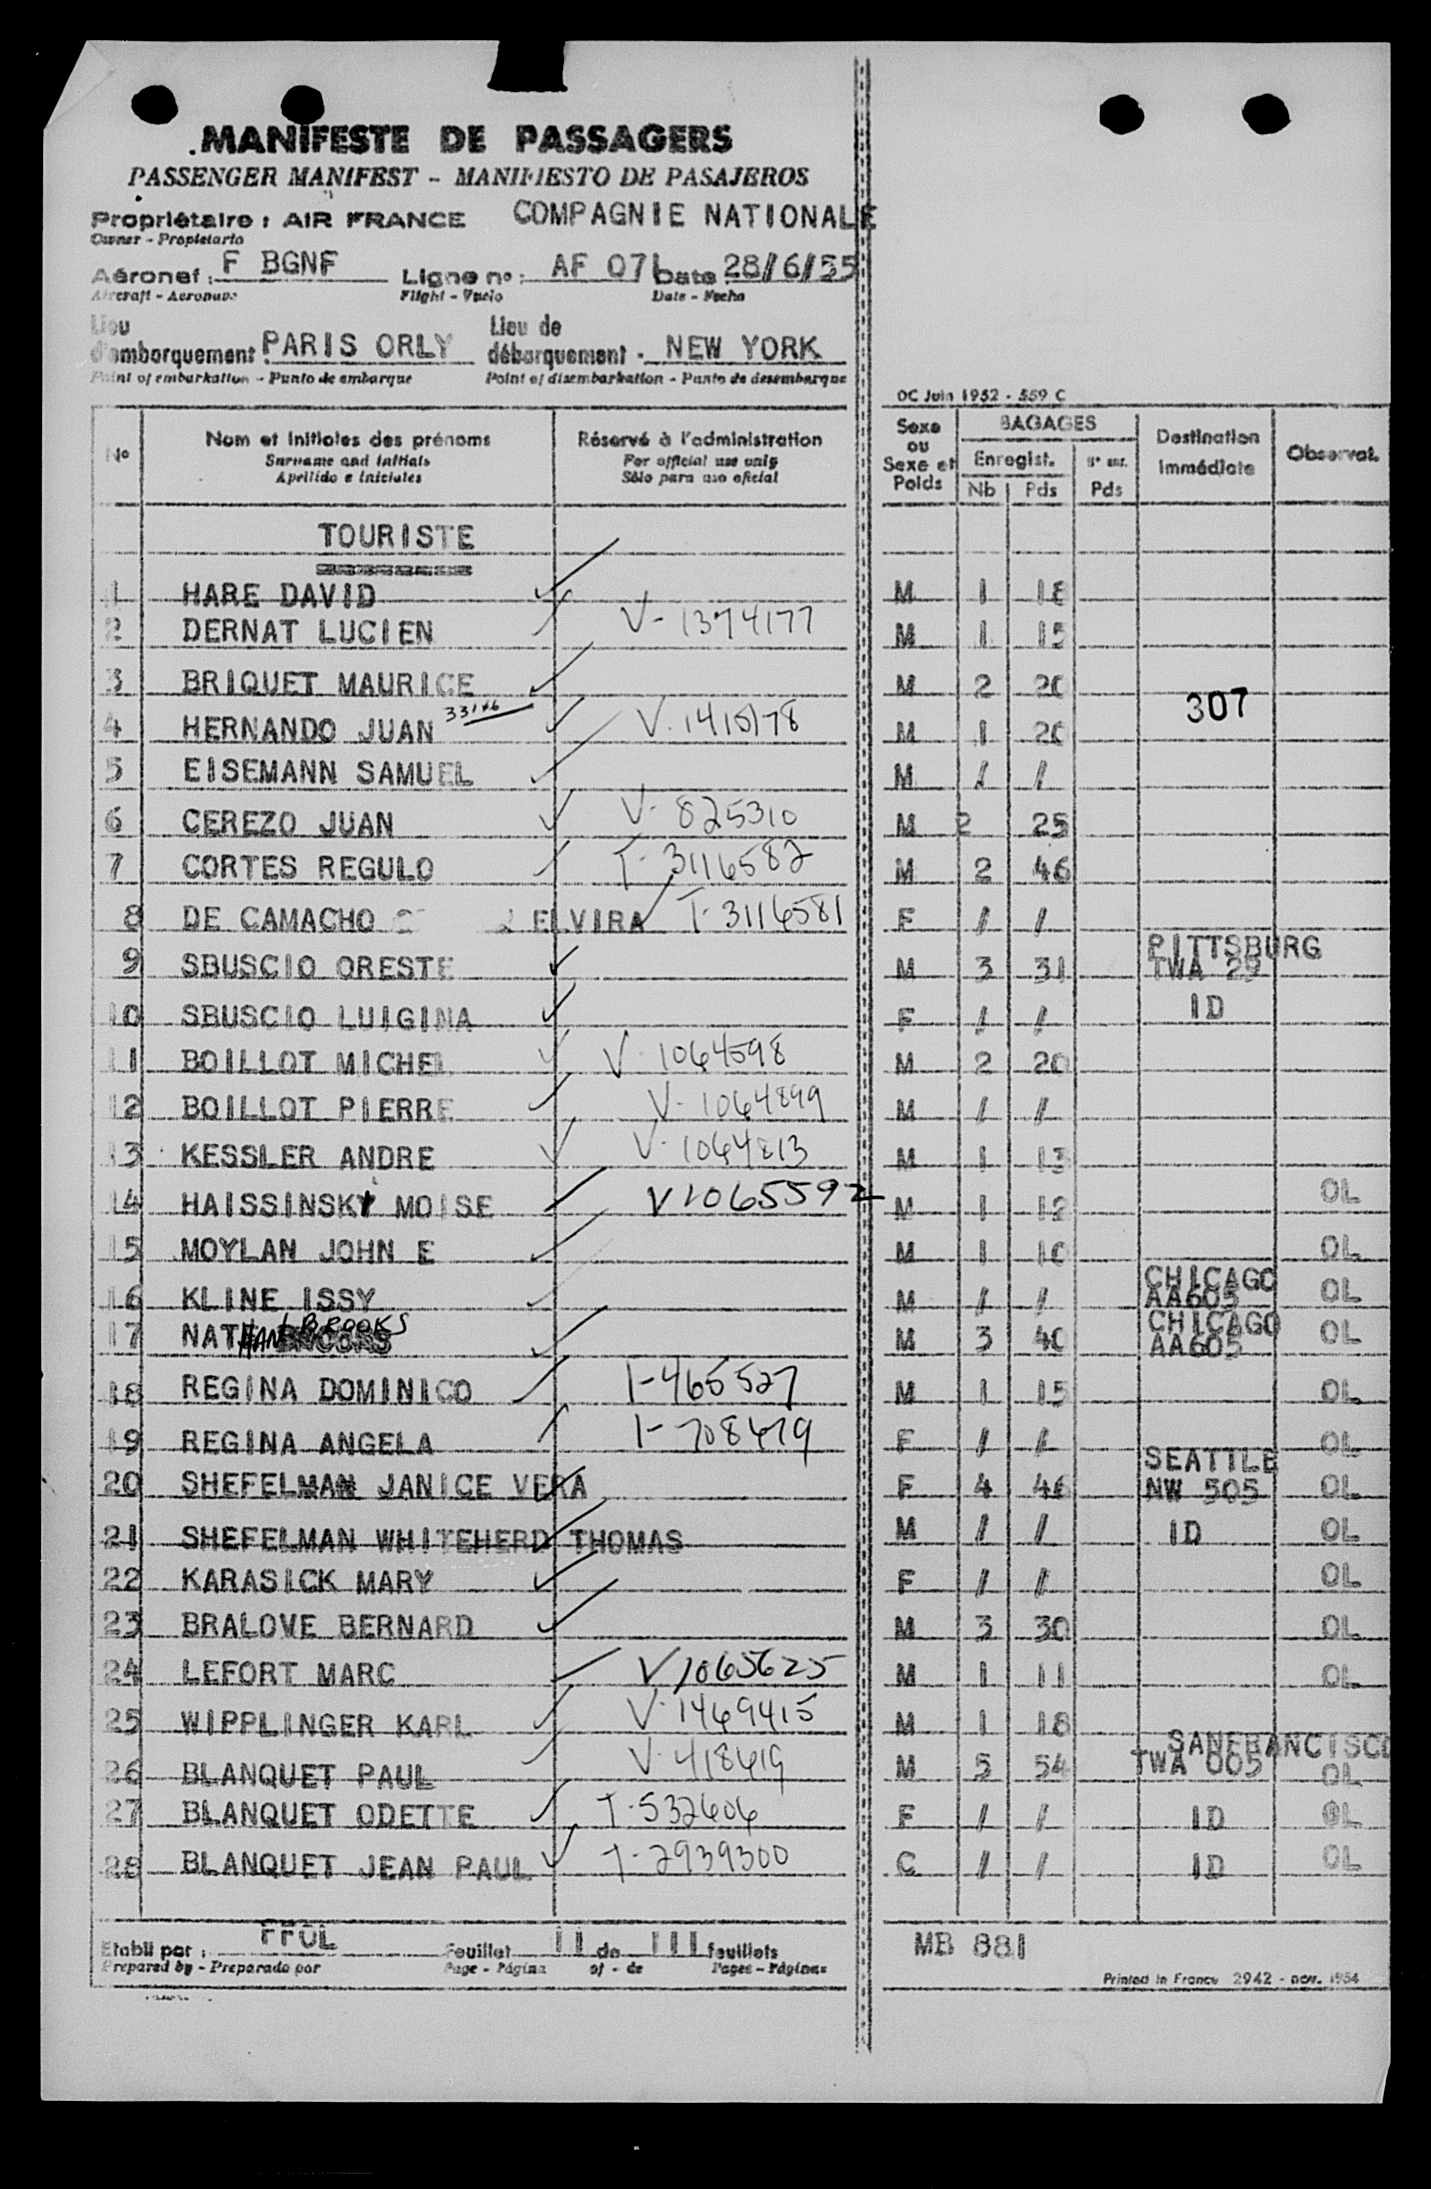 MANIFESTE DE PASSAGERS
PASSENGER MANIFEST - MANIFIESTO DE PASAJEROS
Propriétaire : AIR FRANCE COMPAGNIE NATIONALE
Owner - Propietario
Aéronef : F BGNF Ligne nº : AF 071 Date 28/6/55
Aircraft - Aeronave Flight - Vuelo Date - Fecha
Lieu d'embarquement PARIS ORLY Lieu de débarquement - NEW YORK
Point of embarkation - Punto de embarque Point of disembarkation - Punto de desembarque
OC Juin 1952 - 559 C
Nº Nom et initiales des prénoms Réservé à l'administration Sexe ou Sexe et Poids BAGAGES Destination immédiate Observat.
Surname and initials For official use only Enregist.
Apellido e iniciales Sólo para uso oficial Nb Pds Pds
TOURISTE
1 HARE DAVID M 1 18
2 DERNAT LUCIEN V-1374177 M 1 15
3 BRIQUET MAURICE M 2 20
307
4 HERNANDO JUAN 33166 V.1415178 M 1 20
5 EISEMANN SAMUEL M / /
6 CEREZO JUAN V-825310 M 2 25
7 CORTES REGULO T-3116582 M 2 46
8 DE CAMACHO ELVIRA T-3116581 F / /
9 SBUSCIO ORESTE M 3 31 PITTSBURG TWA 29
10 SBUSCIO LUIGINA F / / ID
11 BOILLOT MICHEL V-1064598 M 2 20
12 BOILLOT PIERRE V-1064899 M / /
13 KESSLER ANDRE V-1064813 M 1 13
14 HAISSINSKY MOISE V1065592 M 1 12 OL
15 MOYLAN JOHN E M 1 10 OL
16 KLINE ISSY M / / CHICAGO AA605 OL
17 NATHAN L BROOKS M 3 40 CHICAGO AA605 OL
18 REGINA DOMINICO T-465527 M 1 15 OL
19 REGINA ANGELA T-708479 F / / OL
20 SHEFELMAN JANICE VERA F 4 46 SEATTLE NW 505 OL
21 SHEFELMAN WHITEHERD THOMAS M / / ID OL
22 KARASICK MARY F / / OL
23 BRALOVE BERNARD M 3 30 OL
24 LEFORT MARC V1065625 M 1 11 OL
25 WIPPLINGER KARL V-1469415 M 1 18
26 BLANQUET PAUL V-418419 M 5 54 SANFRANCISCO TWA 005 OL
27 BLANQUET ODETTE T-532606 F / / ID OL
28 BLANQUET JEAN PAUL T-2939300 C / / ID OL
Etabli par : FFOL Feuillet 11 de 111 feuillets MB 881
Prepared by - Preparado por Page - Página of - de Pages - Páginas
Printed in France 2942 - nov. 1954